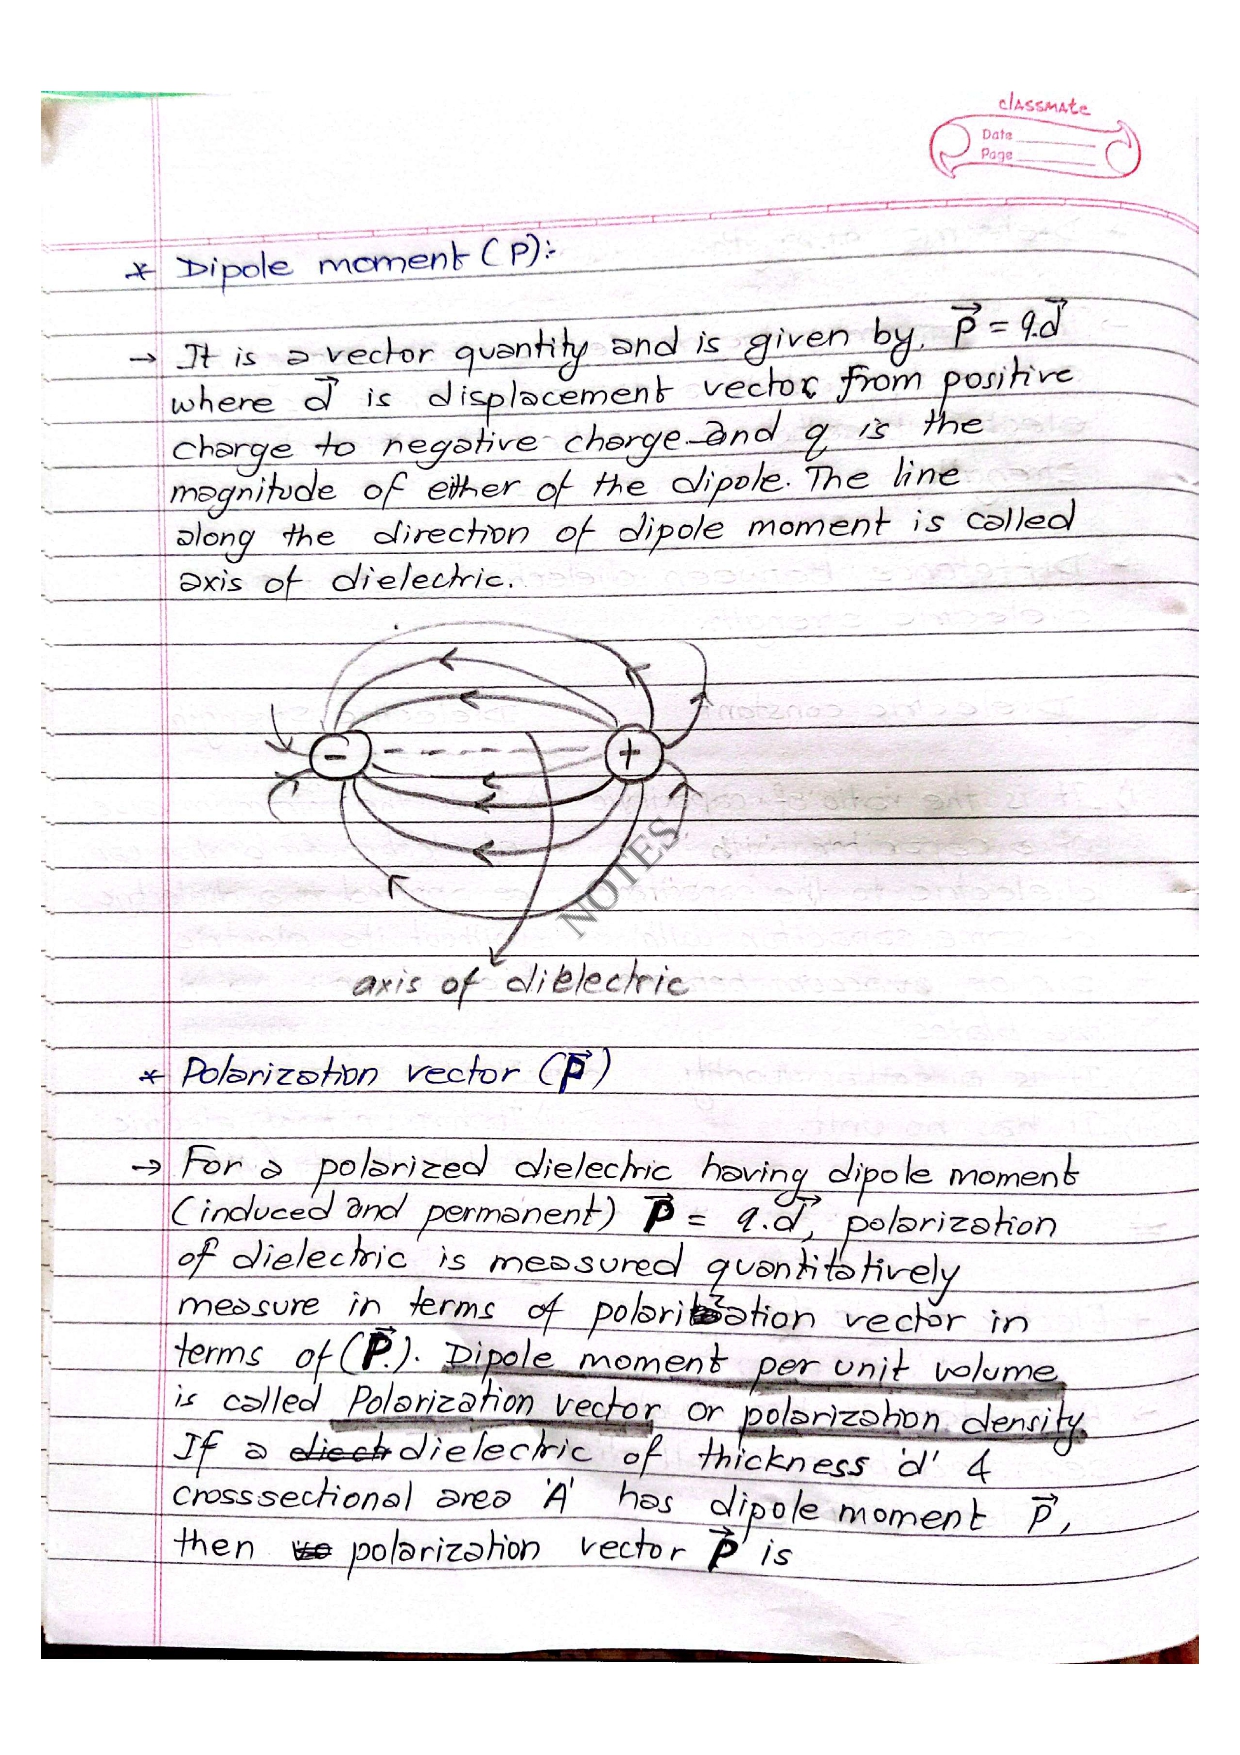 classmate
Date
Page
* Dipole moment (P):-
→ It is a vector quantity and is given by, P⃗ = q.d⃗
where d⃗ is displacement vector from positive
charge to negative charge and q is the
magnitude of either of the dipole. The line
along the direction of dipole moment is called
axis of dielectric.
- +
NOTES
axis of dielectric
* Polarization vector (P⃗)
→ For a polarized dielectric having dipole moment
(induced and permanent) P⃗ = q.d⃗, polarization
of dielectric is measured quantitatively
measure in terms of polarization vector in
terms of (P⃗). Dipole moment per unit volume
is called Polarization vector or polarization density.
If a dielectric of thickness 'd' &
crosssectional area 'A' has dipole moment P⃗,
then polarization vector P⃗ is